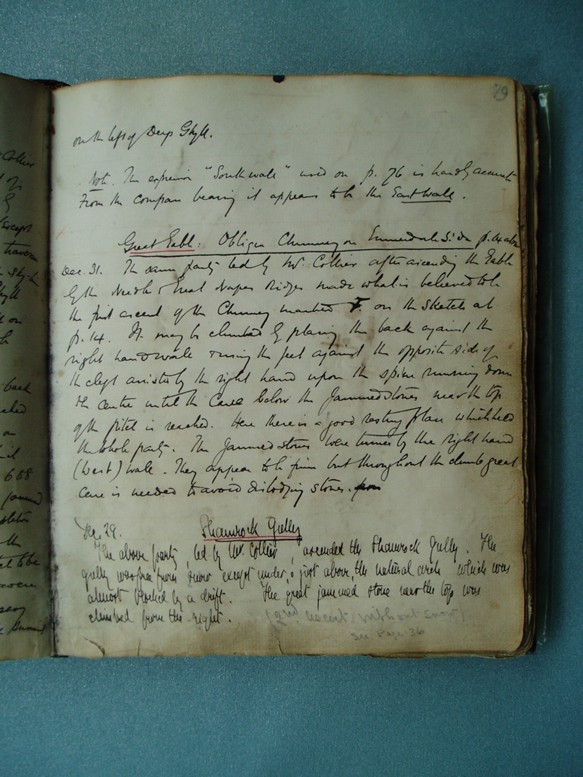 79
on the left of Deep Ghyll.
Note. The expression "South wall" used on p. 76 is hardly accurate
From the compass bearing it appears to be the East wall.
Great Gable. Oblique Chimney on Ennerdale Side p. 14
Dec. 31. The same party led by Mr Collier after ascending the Gable
by the Needle & Great Napes Ridges made what is believed to be
the first ascent of the Chimney marked F on the sketch at
p. 14. It may be climbed by placing the back against the
right hand wall & using the feet against the opposite side of
the cleft assisted by the right hand upon the spine running down
the centre until the Cave below the Jammed stones near the top
of the pitch is reached. Here there is a good resting place which held
the whole party. The Jammed stones were turned by the right hand
(West) wall. They appear to be firm but throughout the climb great
care is needed to avoid dislodging stones.
Dec 29. Shamrock Gulley
The above party, led by Mr. Collier, ascended the Shamrock Gulley. The
gulley was free from snow except under, & just above, the natural arch which was
almost blocked by a drift. The great jammed stone near the top was
climbed from the right. (2nd ascent without snow)
see Page 36